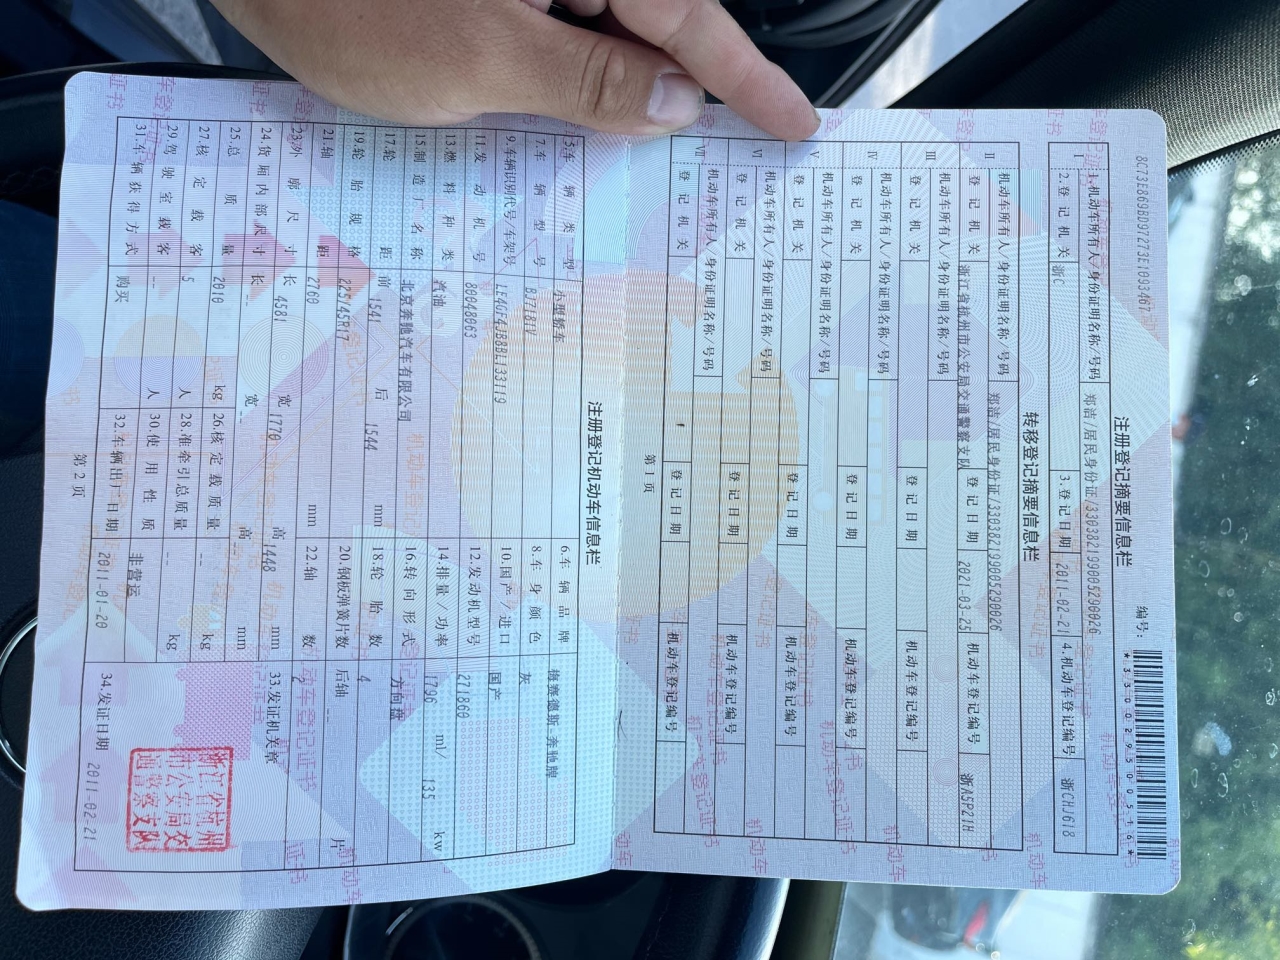 8C73E869BD97273E1093467
编号：
*330029500516*
注册登记摘要信息栏
I 1.机动车所有人/身份证明名称/号码 郑洁/居民身份证/330382199005290026
2.登记机关 浙C 3.登记日期 2011-02-21 4.机动车登记编号 浙CHJ618
转移登记摘要信息栏
II 机动车所有人/身份证明名称/号码 郑洁/居民身份证/330382199005290026
登记机关 浙江省杭州市公安局交通警察支队 登记日期 2021-03-25 机动车登记编号 浙A5P21H
III 机动车所有人/身份证明名称/号码
登记机关 登记日期 机动车登记编号
IV 机动车所有人/身份证明名称/号码
登记机关 登记日期 机动车登记编号
V 机动车所有人/身份证明名称/号码
登记机关 登记日期 机动车登记编号
VI 机动车所有人/身份证明名称/号码
登记机关 登记日期 机动车登记编号
VII 机动车所有人/身份证明名称/号码
登记机关 登记日期 机动车登记编号
第1页
注册登记机动车信息栏
5.车辆类型 小型轿车 6.车辆品牌 梅赛德斯-奔驰牌
7.车辆型号 BJ7181V 8.车身颜色 灰
9.车辆识别代号/车架号 LE4GF4JB8BL133119 10.国产/进口 国产
11.发动机号 80048063 12.发动机型号 271860
13.燃料种类 汽油 14.排量/功率 1796 ml/ 135 kw
15.制造厂名称 北京奔驰汽车有限公司 16.转向形式 方向盘
17.轮距 前 1541 后 1544 mm 18.轮胎数 4
19.轮胎规格 225/45R17 20.钢板弹簧片数 后轴 -- 片
21.轴距 2760 mm 22.轴数 2
23.外廓尺寸 长 4581 宽 1770 高 1448 mm 33.发证机关章
24.货厢内部尺寸 长 -- 宽 -- 高 -- mm
25.总质量 2010 kg 26.核定载质量 -- kg
27.核定载客 5 人 28.准牵引总质量 -- kg
29.驾驶室载客 -- 人 30.使用性质 非营运
31.车辆获得方式 购买 32.车辆出厂日期 2011-01-20 34.发证日期 2011-02-21
浙江省杭州
市公安局交
通警察支队
第2页